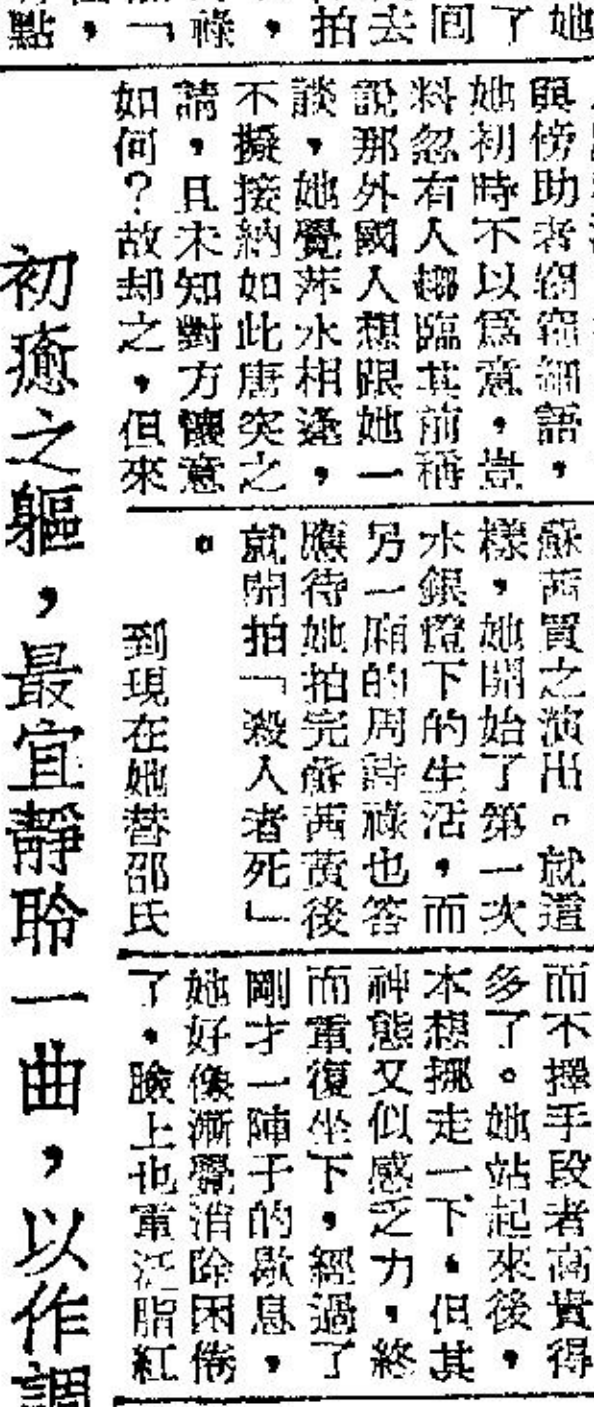 她
了
回
去
拍
，
祿
「
，
點
與傍助者竊竊細語，
她初時不以為意，豈
料忽有人趨臨其前稱
說那外國人想跟她一
談，她覺萍水相逢，
不擬接納如此唐突之
請，且未知對方懷意
如何？故却之，但來
蘇茜買之演出。就這
樣，她開始了第一次
水銀燈下的生活，而
另一廂的周詩祿也答
應待她拍完蘇茜黃後
就開拍「殺人者死」
。
到現在她替邵氏
而不擇手段者高貴得
多了。她站起來後，
本想挪走一下，但其
神態又似感乏力，終
而重復坐下，經過了
剛才一陣子的歇息，
她好像漸覺消除困倦
了，臉上也重泛脂紅
初癒之軀，最宜靜聆一曲，以作調